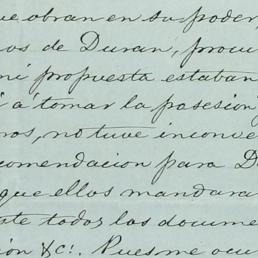 ue obran en su poder,
os de Duran, procu
mi propuesta estaban
í a' tomar la posesion
ros, no tuve inconve
comendacion para D
que ellos mandara
ste todos los docume
ión &c!. Pues me ocu